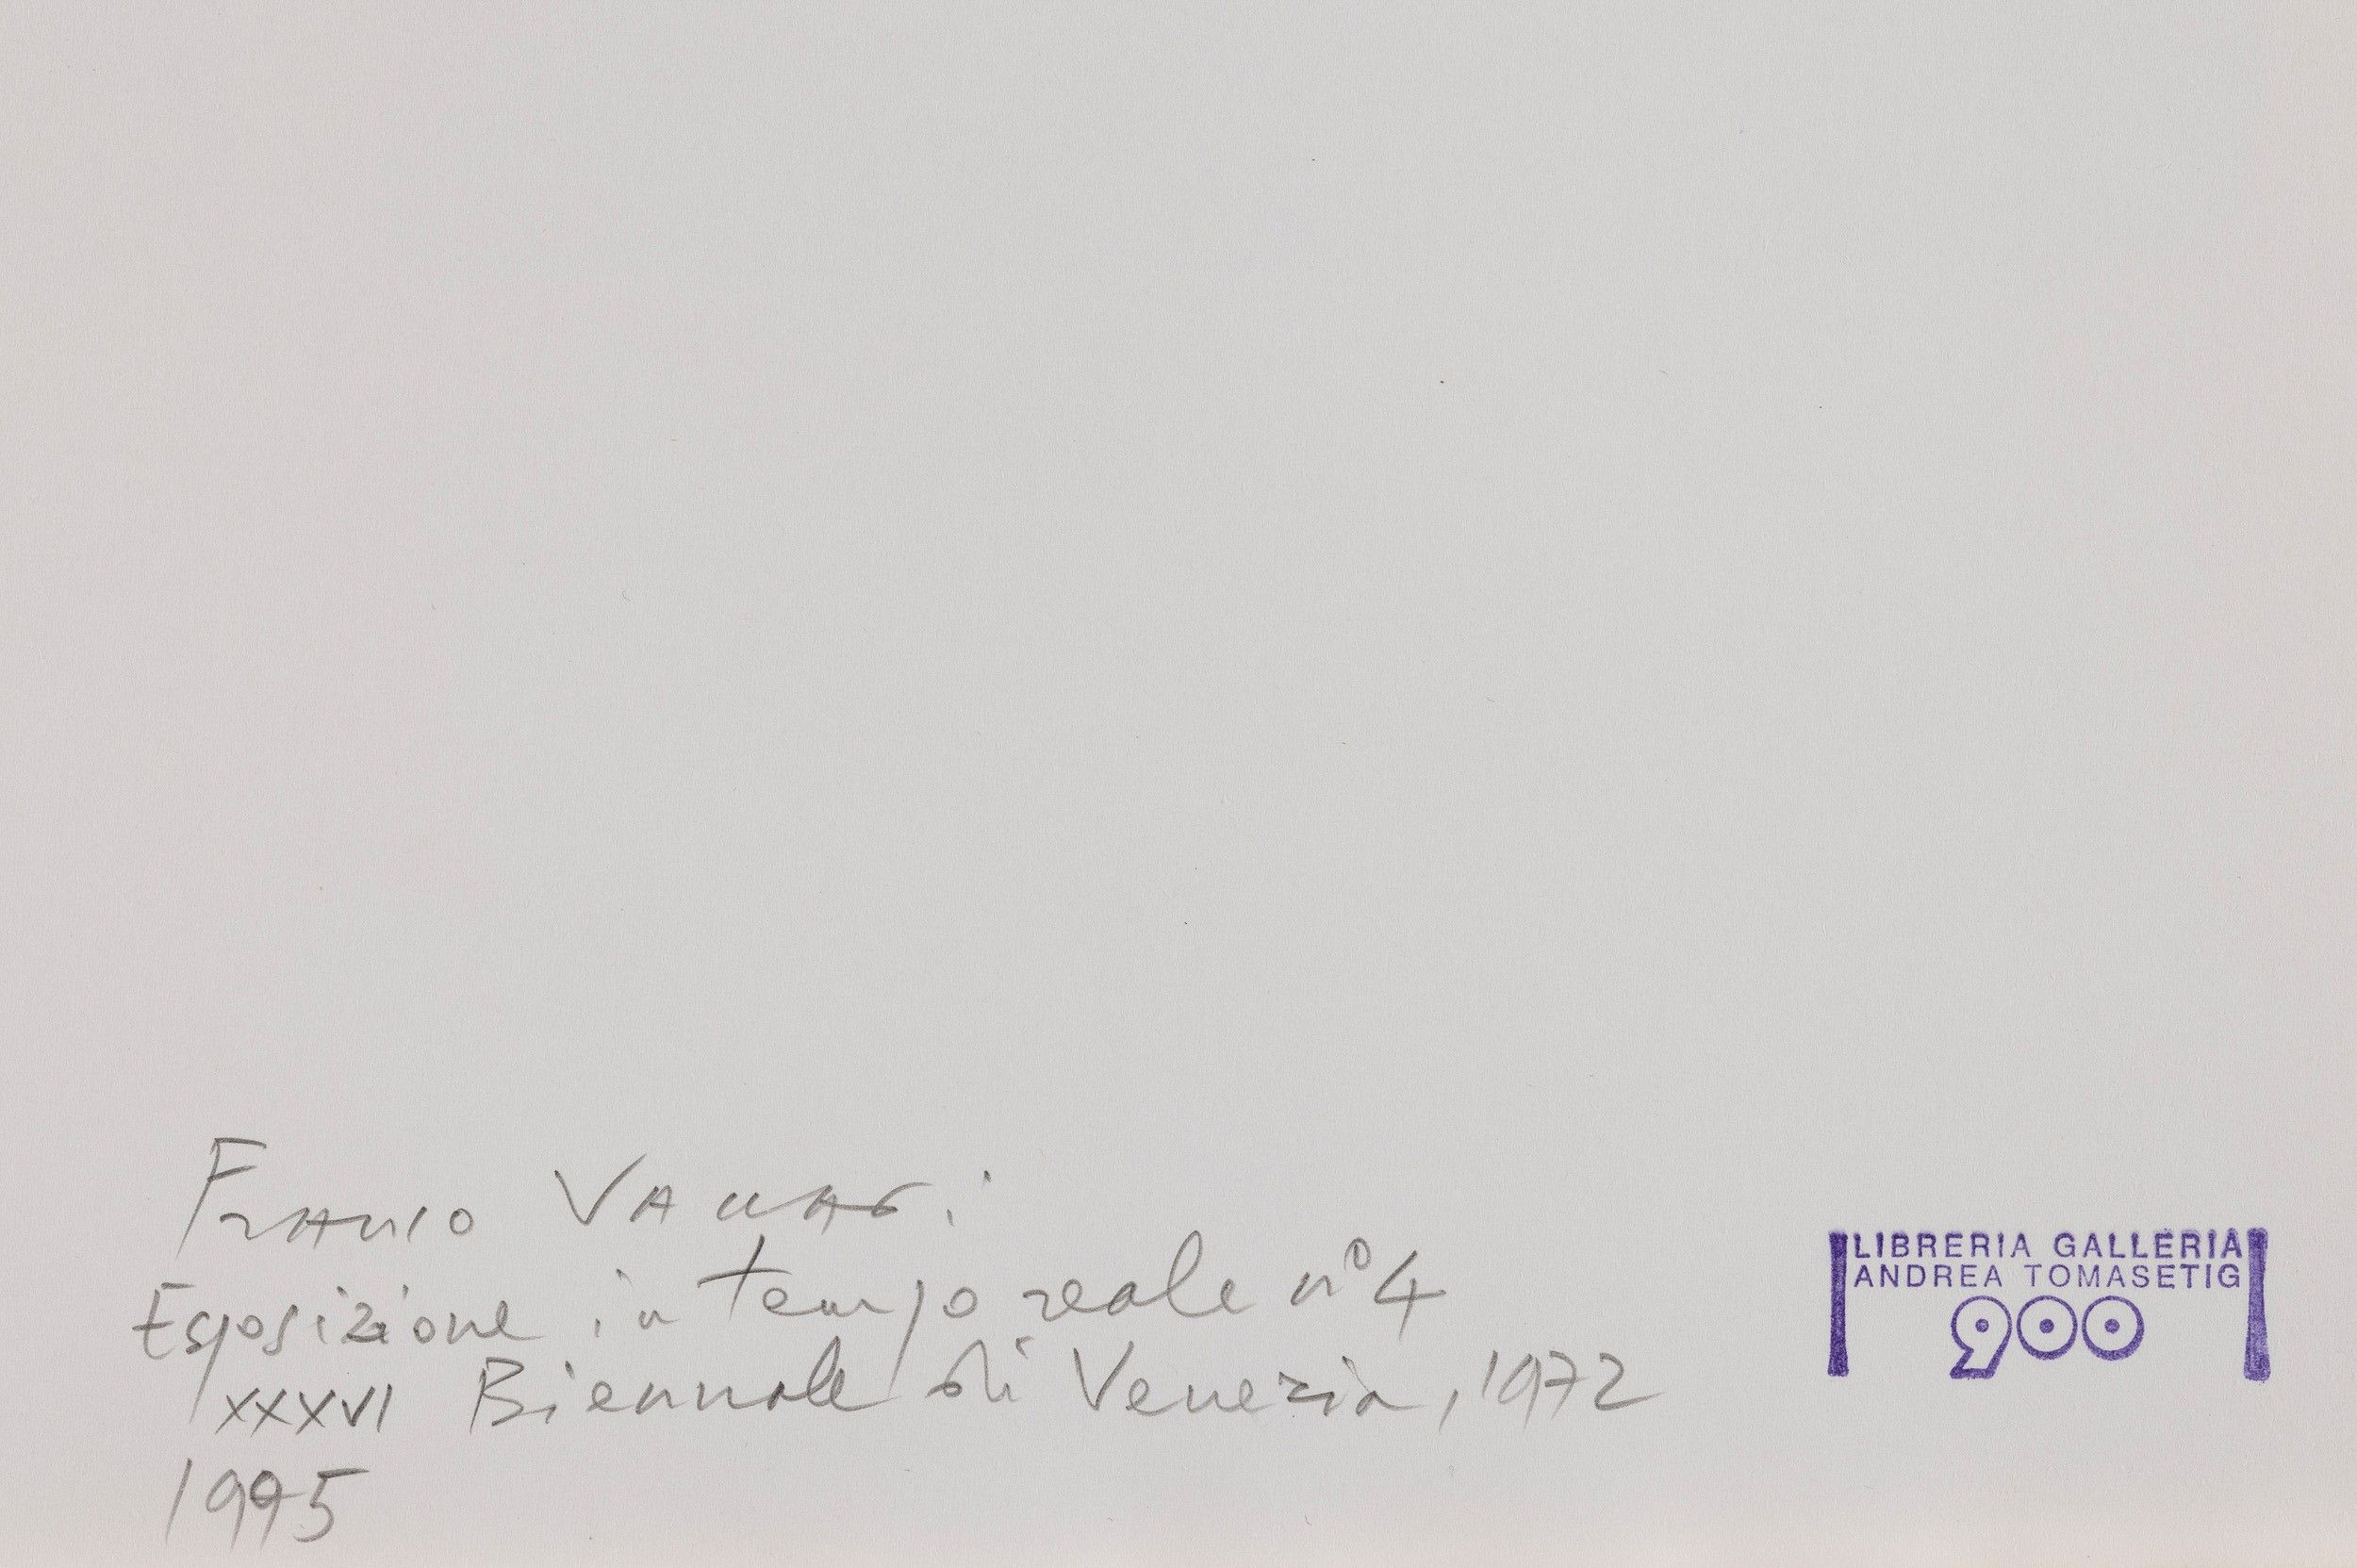 Franco Vaccari
Esposizione in tempo reale n° 4
XXXVI Biennale di Venezia, 1972
1995
LIBRERIA GALLERIA
ANDREA TOMASETIG
900